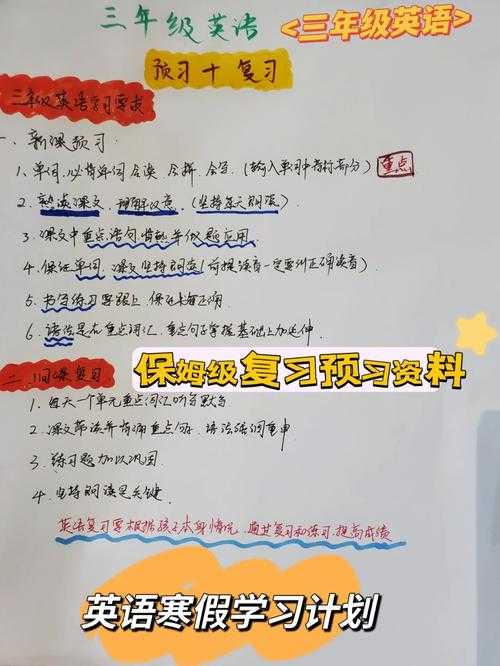 三年级英语
<三年级英语>
预习+复习
三年级英语学习要求
一、新课预习
1、单词,必背单词会读、会拼、会写。(输入单词中有标部分) 重点
2、熟读课文,理解汉意。(坚持每天朗读)
3、课文中重点语句背熟并做题应用。
4、保证单词、课文坚持朗读(前提读音一定要纠正确读音)
5、书写练习要跟上,保证书写正确。
6、语法是在重点词汇、重点句子掌握基础上加延伸。
保姆级复习预习资料
二、旧课复习
1、每天一个单元重点词汇听写默写
2、课文带读并背诵重点句子、语法强调重申
3、练习题加以巩固
4、坚持朗读是关键。
英语复习要根据孩子本身情况,通过复习和练习,提高成绩
英语寒假学习计划